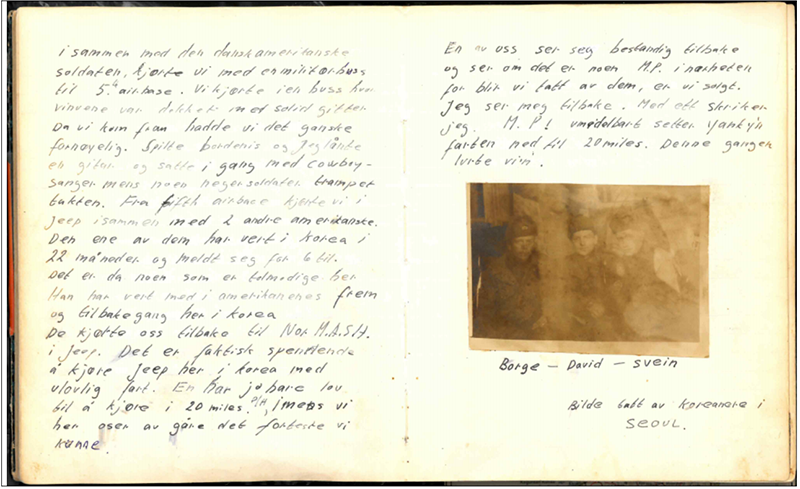 i sammen med den danskamerikanske
soldaten, kjørte vi med en militærbuss
til 5.th airbase. Vi kjørte i en buss hvor
vinvene var dekket med solid gitter
Da vi kom fram hadde vi det ganske
fornøyelig. Spilte bordtenis og jeg lånte
en gitar og satte i gang med cowboy-
sanger mens noen negersoldater trampet
takten. Fra fifth airbase kjørte vi i
jeep i sammen med 2 andre amerikanske.
Den ene av dem har vert i Korea i
22 måneder og meldt seg for 6 til.
Det er da noen som er tolmodige her
Han har vert med i amerikanenes frem
og tilbakegang her i Korea
De kjørte oss tilbake til Nor M.A.S.H.
i jeep. Det er faktisk spendende
å kjøre jeep her i Korea med
ulovlig fart. En har jo bare lov
til å kjøre i 20 miles. P/H, imens vi
her oser av gåre det forteste vi
kunne.
En av oss ser seg bestandig tilbake
og ser om det er noen M.P. i nærheten
for blir vi tatt av dem, er vi solgt.
Jeg ser meg tilbake. Med ett skriker
jeg. M.P! umedelbart setter Yanky'n
farten ned til 20 miles. Denne gangen
lurte vi'n.
Børge – David – Svein
Bilde tatt av Koreanere i
SEOUL.